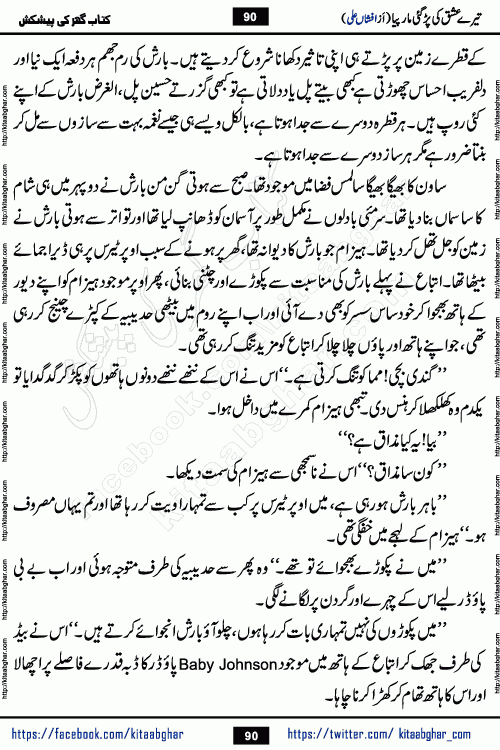 تیرے عشق کی پڑ گئی مار پیا (از افشاں علی)
90
کتاب گھر کی پیشکش
کے قطرے زمین پر پڑتے ہی اپنی تاثیر دکھانا شروع کر دیتے ہیں۔ بارش کی رم جھم ہر دفعہ ایک نیا اور
دلفریب احساس چھوڑتی ہے کبھی بیتے پل یاد دلاتی ہے تو کبھی گزرتے حسین پل، الغرض بارش کے اپنے
کئی روپ ہیں۔ ہر قطرہ دوسرے سے جدا ہوتا ہے، بالکل ویسے ہی جیسے نغمہ بہت سے سازوں سے مل کر
بنتا ضرور ہے مگر ہر ساز دوسرے سے جدا ہوتا ہے۔
ساون کا بھیگا بھیگا سا لمس فضا میں موجود تھا۔ صبح سے ہوتی گن من بارش نے دوپہر میں ہی شام
کا سا سماں بنا دیا تھا۔ سرمئی بادلوں نے مکمل طور پر آسمان کو ڈھانپ لیا تھا اور تواتر سے ہوتی بارش نے
زمین کو جل تھل کر دیا تھا۔ ہیزام جو بارش کا دیوانہ تھا، گھر پر ہونے کے سبب اوپر ٹیرس پر ہی ڈیرا جمائے
بیٹھا تھا۔ اتباع نے پہلے بارش کی مناسبت سے پکوڑے اور چٹنی بنائی، پھر اوپر موجود ہیزام کو اپنے دیور
کے ہاتھ بھجوا کر خود ساس سسر کو بھی دے آئی اور اب اپنے روم میں بیٹھی حدیبیہ کی کپڑے چینج کر رہی
تھی، جو اپنے ہاتھ اور پاؤں چلا چلا کر اتباع کو مزید تنگ کر رہی تھی۔
’’گندی بچی! مما کو تنگ کرتی ہے۔‘‘ اس نے اس کے ننھے ننھے دونوں ہاتھوں کو پکڑ کر گدگدایا تو
یکدم وہ کھلکھلا کر ہنس دی۔ تبھی ہیزام کمرے میں داخل ہوا۔
’’بیا! یہ کیا مذاق ہے؟‘‘
’’کون سا مذاق؟‘‘ اس نے ناسمجھی سے ہیزام کی سمت دیکھا۔
’’باہر بارش ہو رہی ہے، میں اوپر ٹیرس پر کب سے تمہارا ویٹ کر رہا تھا اور تم یہاں مصروف
ہو۔‘‘ ہیزام کے لہجے میں خفگی تھی۔
’’میں نے پکوڑے بھجوائے تو تھے۔‘‘ وہ پھر سے حدیبیہ کی طرف متوجہ ہوئی اور اب بے بی
پاؤڈر لیے اس کے چہرے اور گردن پر لگانے لگی۔
’’میں پکوڑوں کی نہیں تمہاری بات کر رہا ہوں، چلو آؤ بارش انجوائے کرتے ہیں۔‘‘ اس نے بیڈ
کی طرف جھک کر اتباع کے ہاتھ میں موجود Baby Johnson پاؤڈر کا ڈبہ قدرے فاصلے پر اچھالا
اور اس کا ہاتھ تھام کر کھڑا کرنا چاہا۔
https://facebook.com/kitaabghar
90
https://twitter.com/ kitaabghar_com
http://kitaabghar.com